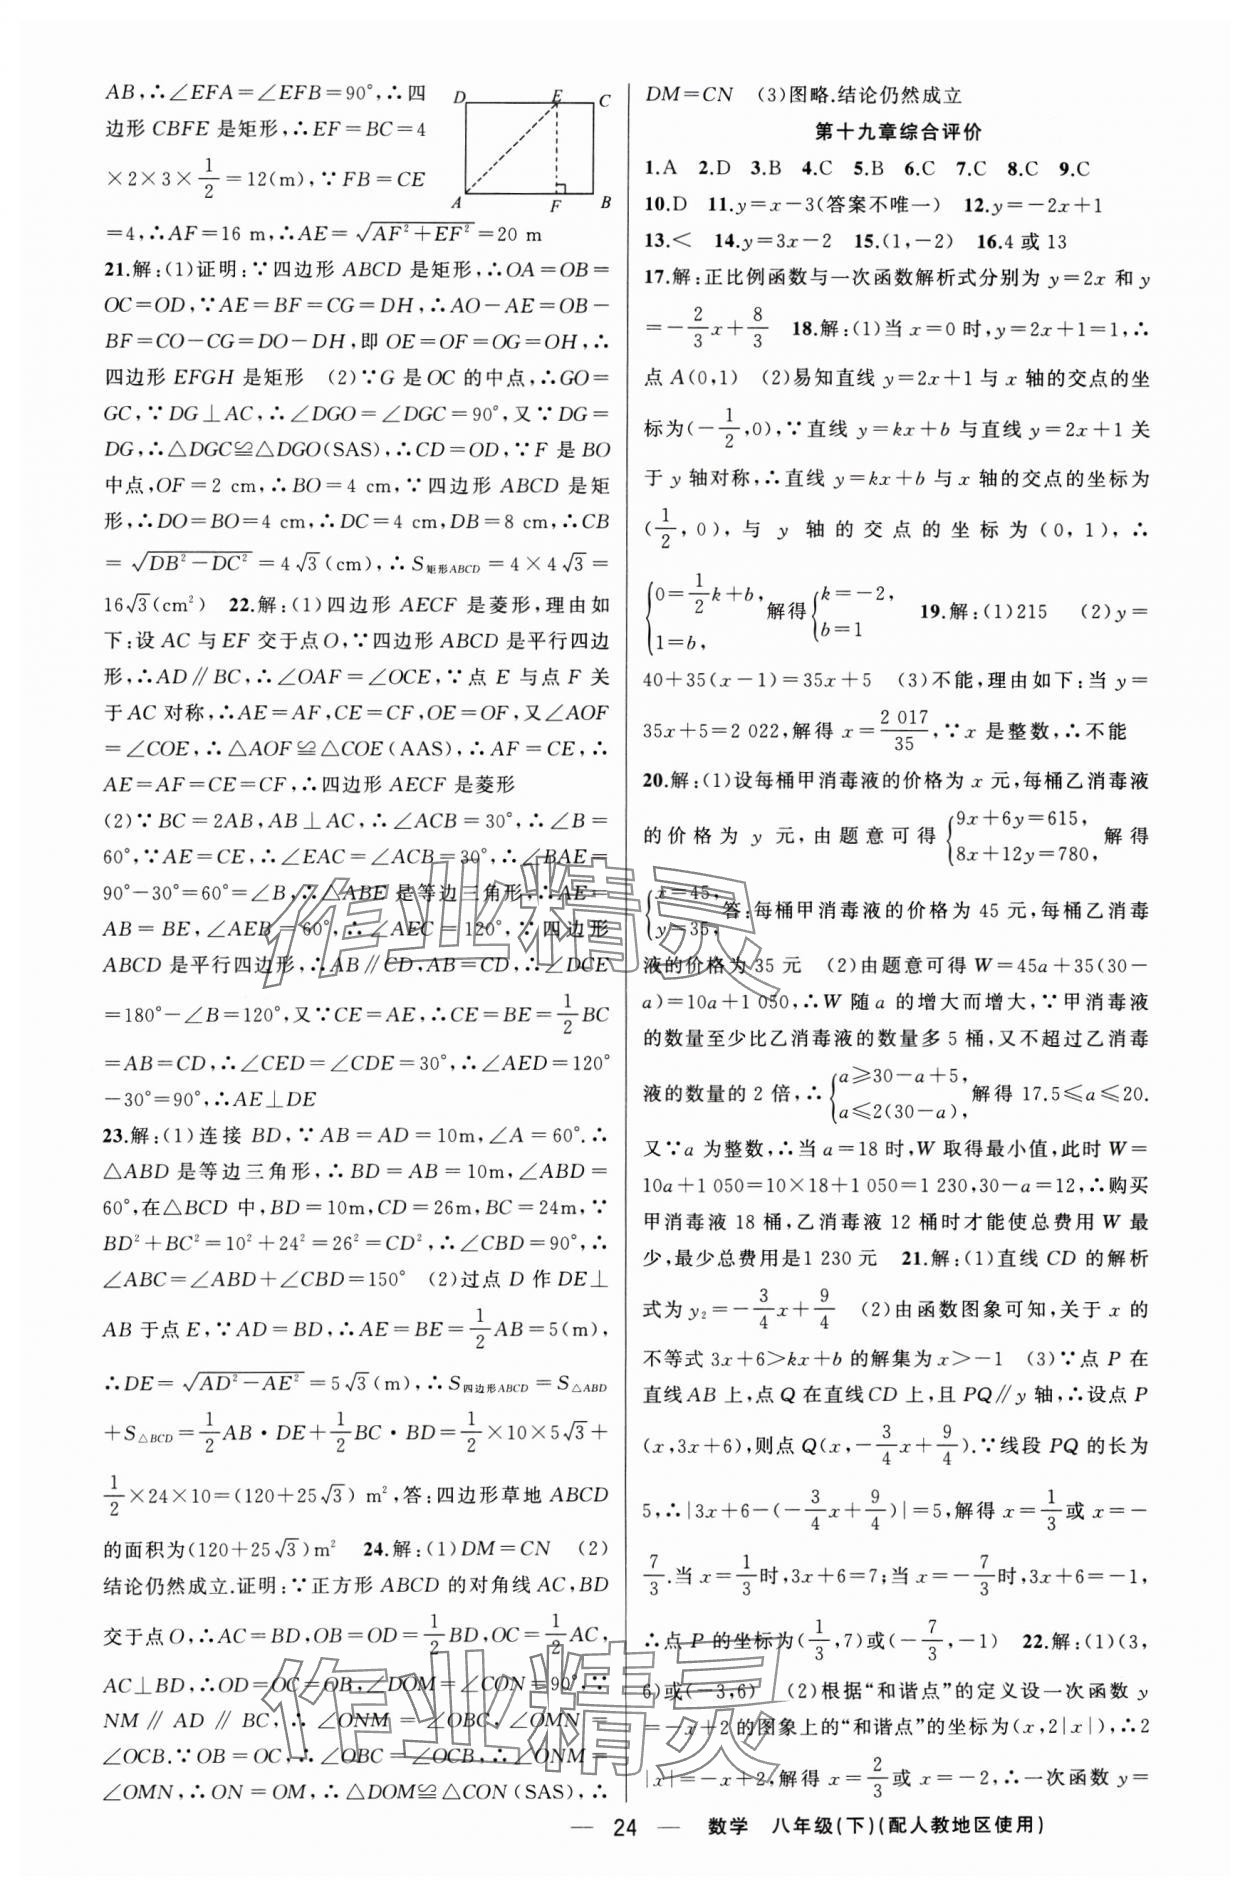 AB,∴∠EFA=∠EFB=90°,∴四
边形 CBFE 是矩形,∴EF=BC=4
×2×3×1/2=12(m),∵FB=CE
=4,∴AF=16 m,∴AE=√(AF²+EF²)=20 m
D E C
A F B
21.解:(1)证明:∵四边形 ABCD 是矩形,∴OA=OB=
OC=OD,∵AE=BF=CG=DH,∴AO-AE=OB-
BF=CO-CG=DO-DH,即 OE=OF=OG=OH,∴
四边形 EFGH 是矩形 (2)∵G 是 OC 的中点,∴GO=
GC,∵DG⊥AC,∴∠DGO=∠DGC=90°,又∵DG=
DG,∴△DGC≌△DGO(SAS),∴CD=OD,∵F 是 BO
中点,OF=2 cm,∴BO=4 cm,∵四边形 ABCD 是矩
形,∴DO=BO=4 cm,∴DC=4 cm,DB=8 cm,∴CB
=√(DB²-DC²)=4√3(cm),∴S矩形ABCD=4×4√3=
16√3(cm²) 22.解:(1)四边形 AECF 是菱形,理由如
下:设 AC 与 EF 交于点 O,∵四边形 ABCD 是平行四边
形,∴AD∥BC,∴∠OAF=∠OCE,∵点 E 与点 F 关
于 AC 对称,∴AE=AF,CE=CF,OE=OF,又∠AOF
=∠COE,∴△AOF≌△COE(AAS),∴AF=CE,∴
AE=AF=CE=CF,∴四边形 AECF 是菱形
(2)∵BC=2AB,AB⊥AC,∴∠ACB=30°,∴∠B=
60°,∵AE=CE,∴∠EAC=∠ACB=30°,∴∠BAE=
90°-30°=60°=∠B,∴△ABE 是等边三角形,∴AE=
AB=BE,∠AEB=60°,∴∠AEC=120°,∵四边形
ABCD 是平行四边形,∴AB∥CD,AB=CD,∴∠DCE
=180°-∠B=120°,又∵CE=AE,∴CE=BE=1/2BC
=AB=CD,∴∠CED=∠CDE=30°,∴∠AED=120°
-30°=90°,∴AE⊥DE
23.解:(1)连接 BD,∵AB=AD=10m,∠A=60°.∴
△ABD 是等边三角形,∴BD=AB=10m,∠ABD=
60°,在△BCD 中,BD=10m,CD=26m,BC=24m,∵
BD²+BC²=10²+24²=26²=CD²,∴∠CBD=90°,∴
∠ABC=∠ABD+∠CBD=150° (2)过点 D 作 DE⊥
AB 于点 E,∵AD=BD,∴AE=BE=1/2AB=5(m),
∴DE=√(AD²-AE²)=5√3(m),∴S四边形ABCD=S△ABD
+S△BCD=1/2AB·DE+1/2BC·BD=1/2×10×5√3+
1/2×24×10=(120+25√3) m²,答:四边形草地 ABCD
的面积为(120+25√3)m² 24.解:(1)DM=CN (2)
结论仍然成立.证明:∵正方形 ABCD 的对角线 AC,BD
交于点 O,∴AC=BD,OB=OD=1/2BD,OC=1/2AC,
AC⊥BD,∴OD=OC=OB,∠DOM=∠CON=90°,∵
NM∥AD∥BC,∴∠ONM=∠OBC,∠OMN=
∠OCB.∵OB=OC,∴∠OBC=∠OCB,∴∠ONM=
∠OMN,∴ON=OM,∴△DOM≌△CON(SAS),∴
DM=CN (3)图略.结论仍然成立
第十九章综合评价
1.A 2.D 3.B 4.C 5.B 6.C 7.C 8.C 9.C
10.D 11.y=x-3(答案不唯一) 12.y=-2x+1
13.< 14.y=3x-2 15.(1,-2) 16.4 或 13
17.解:正比例函数与一次函数解析式分别为 y=2x 和 y
=-2/3x+8/3 18.解:(1)当 x=0 时,y=2x+1=1,∴
点 A(0,1) (2)易知直线 y=2x+1 与 x 轴的交点的坐
标为(-1/2,0),∵直线 y=kx+b 与直线 y=2x+1 关
于 y 轴对称,∴直线 y=kx+b 与 x 轴的交点的坐标为
(1/2,0),与 y 轴的交点的坐标为(0,1),∴
{0=1/2k+b, 1=b, 解得{k=-2, b=1 19.解:(1)215 (2)y=
40+35(x-1)=35x+5 (3)不能,理由如下:当 y=
35x+5=2 022,解得 x=2 017/35,∵x 是整数,∴不能
20.解:(1)设每桶甲消毒液的价格为 x 元,每桶乙消毒液
的价格为 y 元,由题意可得{9x+6y=615, 8x+12y=780, 解得
{x=45, y=35, 答:每桶甲消毒液的价格为 45 元,每桶乙消毒
液的价格为 35 元 (2)由题意可得 W=45a+35(30-
a)=10a+1 050,∴W 随 a 的增大而增大,∵甲消毒液
的数量至少比乙消毒液的数量多 5 桶,又不超过乙消毒
液的数量的 2 倍,∴{a≥30-a+5, a≤2(30-a), 解得 17.5≤a≤20.
又∵a 为整数,∴当 a=18 时,W 取得最小值,此时 W=
10a+1 050=10×18+1 050=1 230,30-a=12,∴购买
甲消毒液 18 桶,乙消毒液 12 桶时才能使总费用 W 最
少,最少总费用是1 230 元 21.解:(1)直线 CD 的解析
式为 y₂=-3/4x+9/4 (2)由函数图象可知,关于 x 的
不等式 3x+6>kx+b 的解集为 x>-1 (3)∵点 P 在
直线 AB 上,点 Q 在直线 CD 上,且 PQ∥y 轴,∴设点 P
(x,3x+6),则点 Q(x,-3/4x+9/4).∵线段 PQ 的长为
5,∴|3x+6-(-3/4x+9/4)|=5,解得 x=1/3或 x=-
7/3.当 x=1/3时,3x+6=7;当 x=-7/3时,3x+6=-1,
∴点 P 的坐标为(1/3,7)或(-7/3,-1) 22.解:(1)(3,
6)或(-3,6) (2)根据“和谐点”的定义设一次函数 y
=-x+2的图象上的“和谐点”的坐标为(x,2|x|),∴2
|x|=-x+2,解得 x=2/3或 x=-2,∴一次函数 y=
— 24 — 数学 八年级(下)(配人教地区使用)
作业精灵
作业精灵